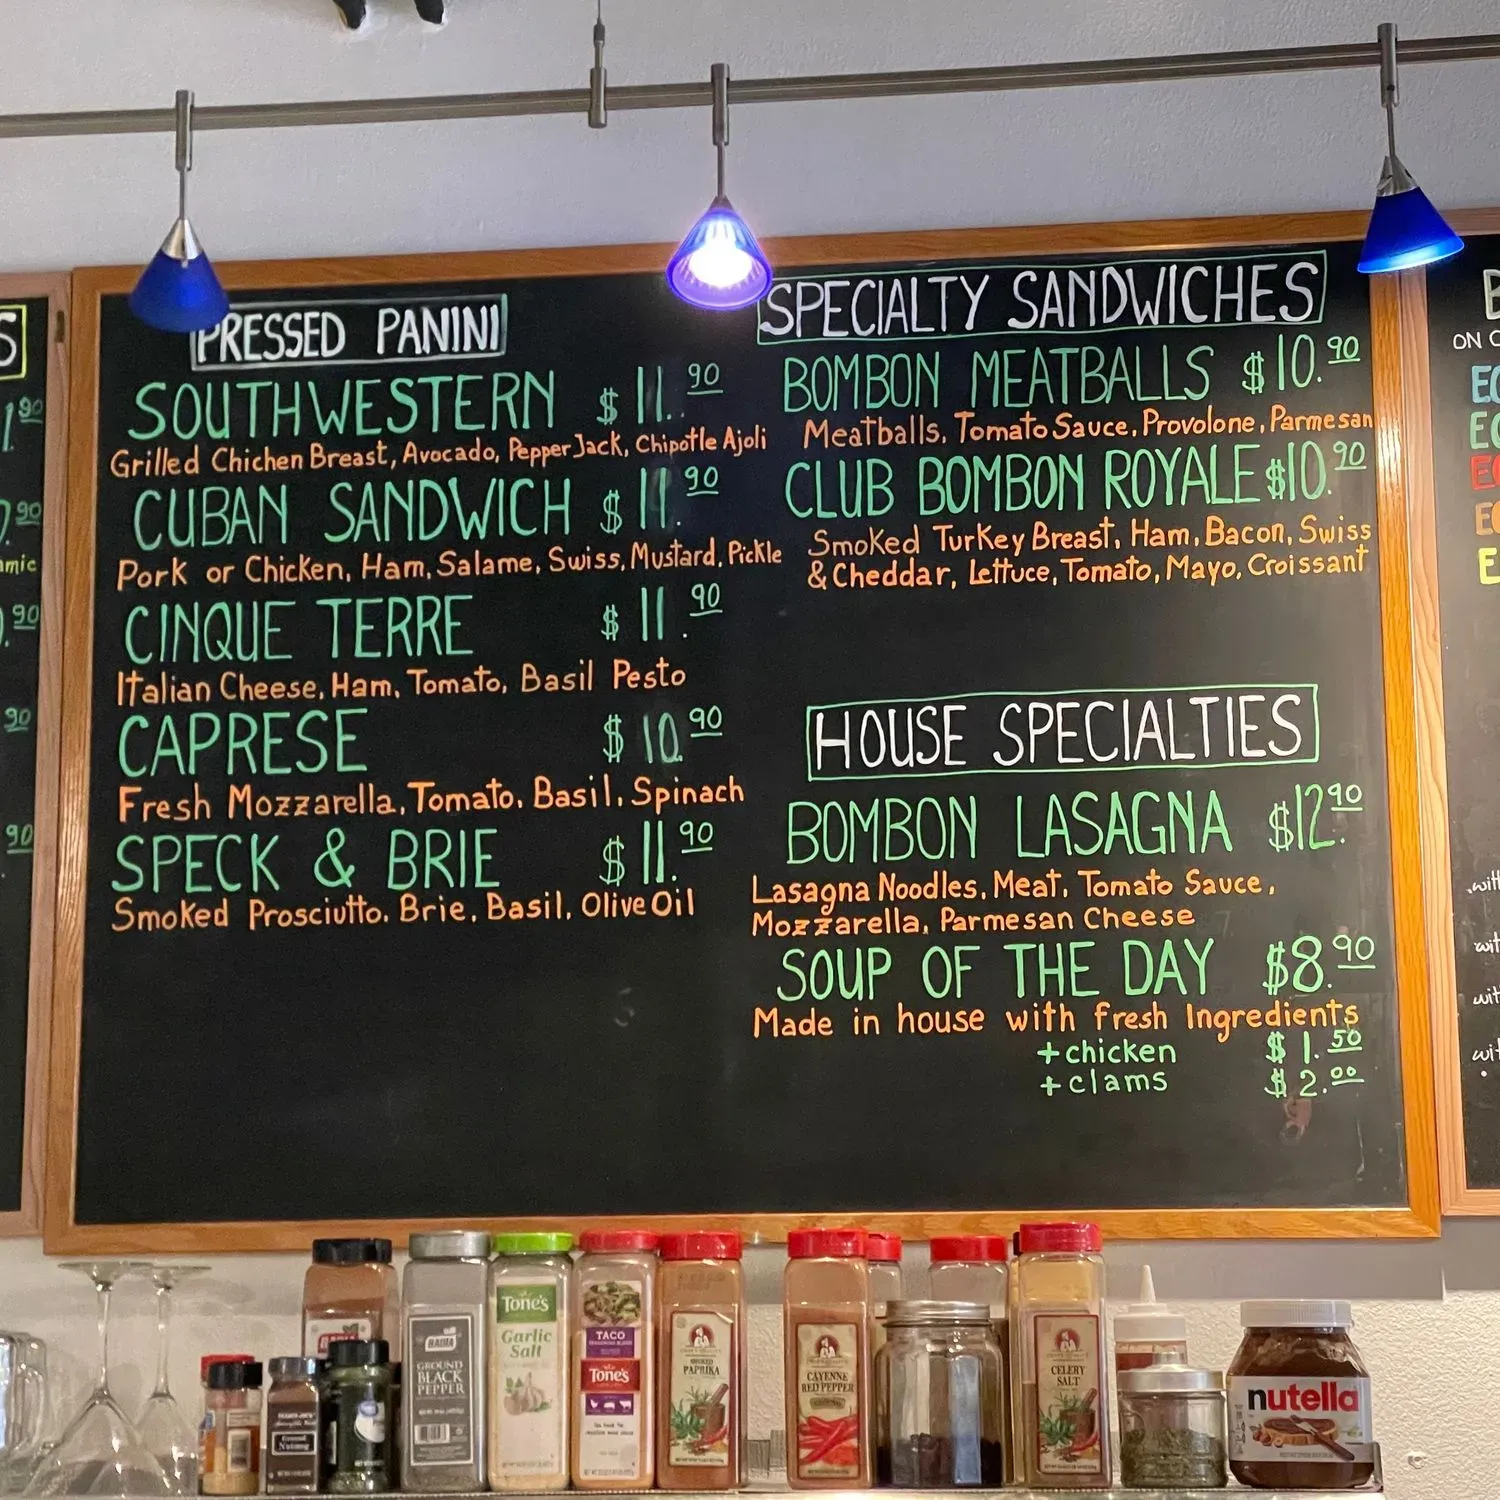 PRESSED PANINI
SOUTHWESTERN $11.90
Grilled Chichen Breast, Avocado, Pepper Jack, Chipotle Ajoli
CUBAN SANDWICH $11.90
Pork or Chicken, Ham, Salame, Swiss, Mustard, Pickle
CINQUE TERRE $11.90
Italian Cheese, Ham, Tomato, Basil Pesto
CAPRESE $10.90
Fresh Mozzarella, Tomato, Basil, Spinach
SPECK & BRIE $11.90
Smoked Prosciutto, Brie, Basil, Olive Oil
SPECIALTY SANDWICHES
BOMBON MEATBALLS $10.90
Meatballs, Tomato Sauce, Provolone, Parmesan
CLUB BOMBON ROYALE $10.90
Smoked Turkey Breast, Ham, Bacon, Swiss
& Cheddar, Lettuce, Tomato, Mayo, Croissant
HOUSE SPECIALTIES
BOMBON LASAGNA $12.90
Lasagna Noodles, Meat, Tomato Sauce,
Mozzarella, Parmesan Cheese
SOUP OF THE DAY $8.90
Made in house with fresh Ingredients
+ chicken $1.50
+ clams $2.00
90
90
90
90
90
ON
BADIA
GROUND
BLACK
PEPPER
Tone's
Garlic
Salt
TACO
Tone's
SMOKED
PAPRIKA
CAYENNE
RED PEPPER
CELERY
SALT
Ground
Nutmeg
nutella